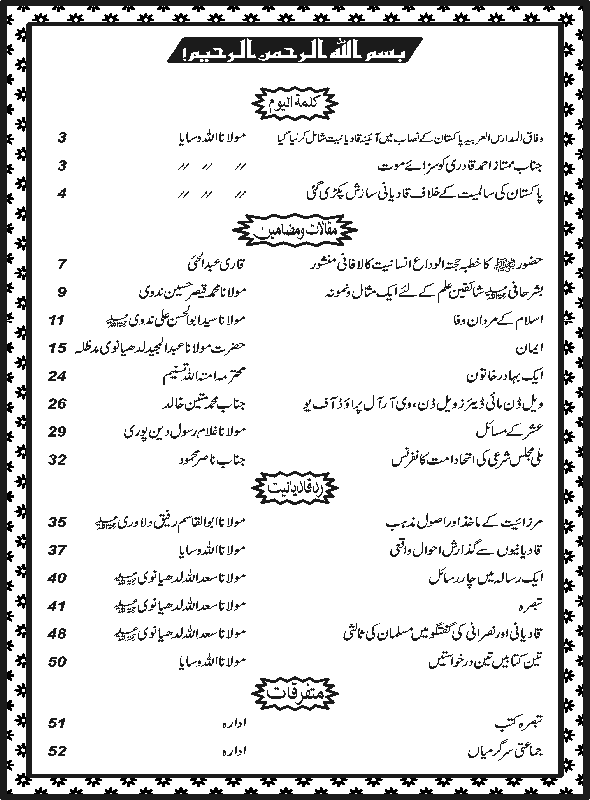 بسم الله الرحمن الرحیم!
کلمۃ الیوم
وفاق المدارس العربیہ پاکستان کے نصاب میں آئینہ قادیانیت شامل کرلیا گیا مولانا اللہ وسایا 3
جناب ممتاز احمد قادری کو سزائے موت // // // 3
پاکستان کی سالمیت کے خلاف قادیانی سازش پکڑی گئی // // // 4
مقالات ومضامین
حضور ﷺ کا خطبہ حجۃ الوداع انسانیت کا لافانی منشور قاری عبدالحئی 7
بشر حافی رحمۃ اللہ علیہ شائقین علم کے لئے ایک مثال ونمونہ مولانا محمد قیصر حسین ندوی 9
اسلام کے مردان وفا مولانا سید ابوالحسن علی ندوی رحمۃ اللہ علیہ 11
ایمان حضرت مولانا عبدالمجید لدھیانوی مدظلہ 15
ایک بہادر خاتون محترمہ امتہ اللہ تسنیم 24
ویل ڈن مائی ڈیئرز ویل ڈن، وی آر آل پراؤڈ آف یو جناب محمد متین خالد 26
عشر کے مسائل مولانا غلام رسول دین پوری 29
ملی مجلس شرعی کی اتحاد امت کانفرنس جناب ناصر محمود 32
رد قادیانیت
مرزائیت کے ماخذ اور اصول مذہب مولانا ابوالقاسم رفیق دلاوری رحمۃ اللہ علیہ 35
قادیانیوں سے گذارش احوال واقعی مولانا اللہ وسایا 37
ایک رسالہ میں چار رسائل مولانا سعد اللہ لدھیانوی رحمۃ اللہ علیہ 40
تبصرہ مولانا سعد اللہ لدھیانوی رحمۃ اللہ علیہ 41
قادیانی اور نصرانی کی گفتگو میں مسلمان کی ثالثی مولانا سعد اللہ لدھیانوی رحمۃ اللہ علیہ 48
تین کتابیں تین درخواستیں مولانا اللہ وسایا 50
متفرقات
تبصرہ کتب ادارہ 51
جماعتی سرگرمیاں ادارہ 52